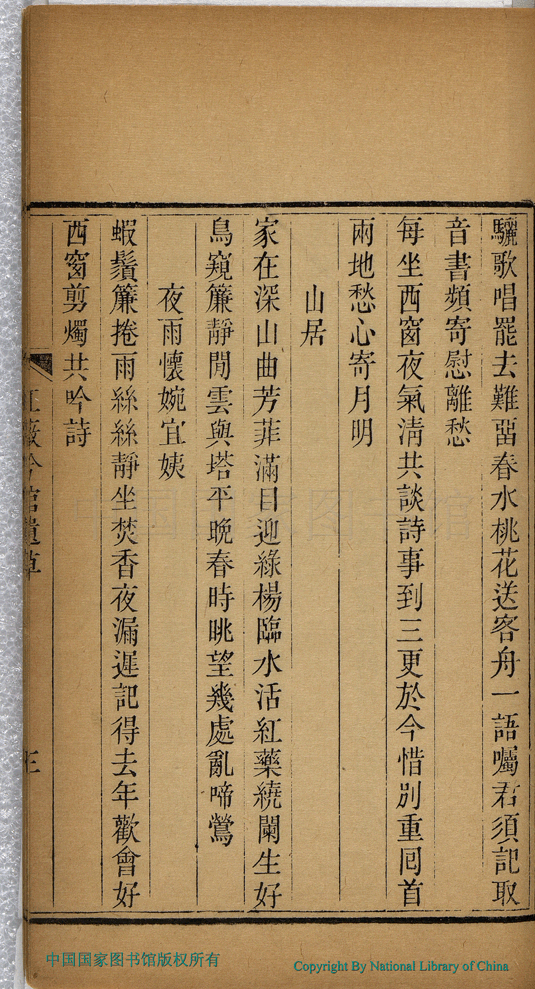 驪歌唱罷去難畱春水桃花送客舟一語囑君須記取
音書頻寄慰離愁
每坐西窗夜氣清共談詩事到三更於今惜別重回首
兩地愁心寄月明
山居
家在深山曲芳菲滿目迎綠楊臨水活紅藥繞闌生好
鳥窺簾靜閒雲與塔平晚春時眺望幾處亂啼鶯
夜雨懷婉宜姨
蝦鬚簾捲雨絲絲靜坐焚香夜漏遲記得去年歡會好
西窗剪燭共吟詩
中国国家图书馆版权所有
Copyright By National Library of China